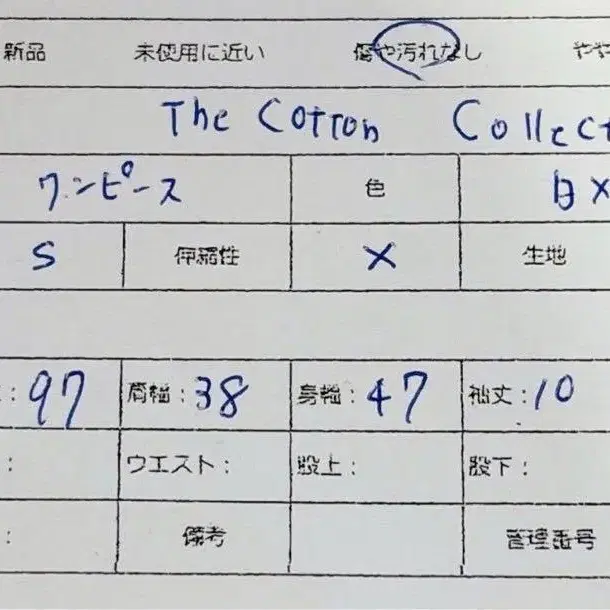 新品 未使用に近い 傷や汚れなし やや
The Cotton Collect
ワンピース 色 白×
S 伸縮性 × 生地
: 97 肩幅: 38 身幅: 47 袖丈: 10
: ウエスト: 股上: 股下:
: 備考 管理番号